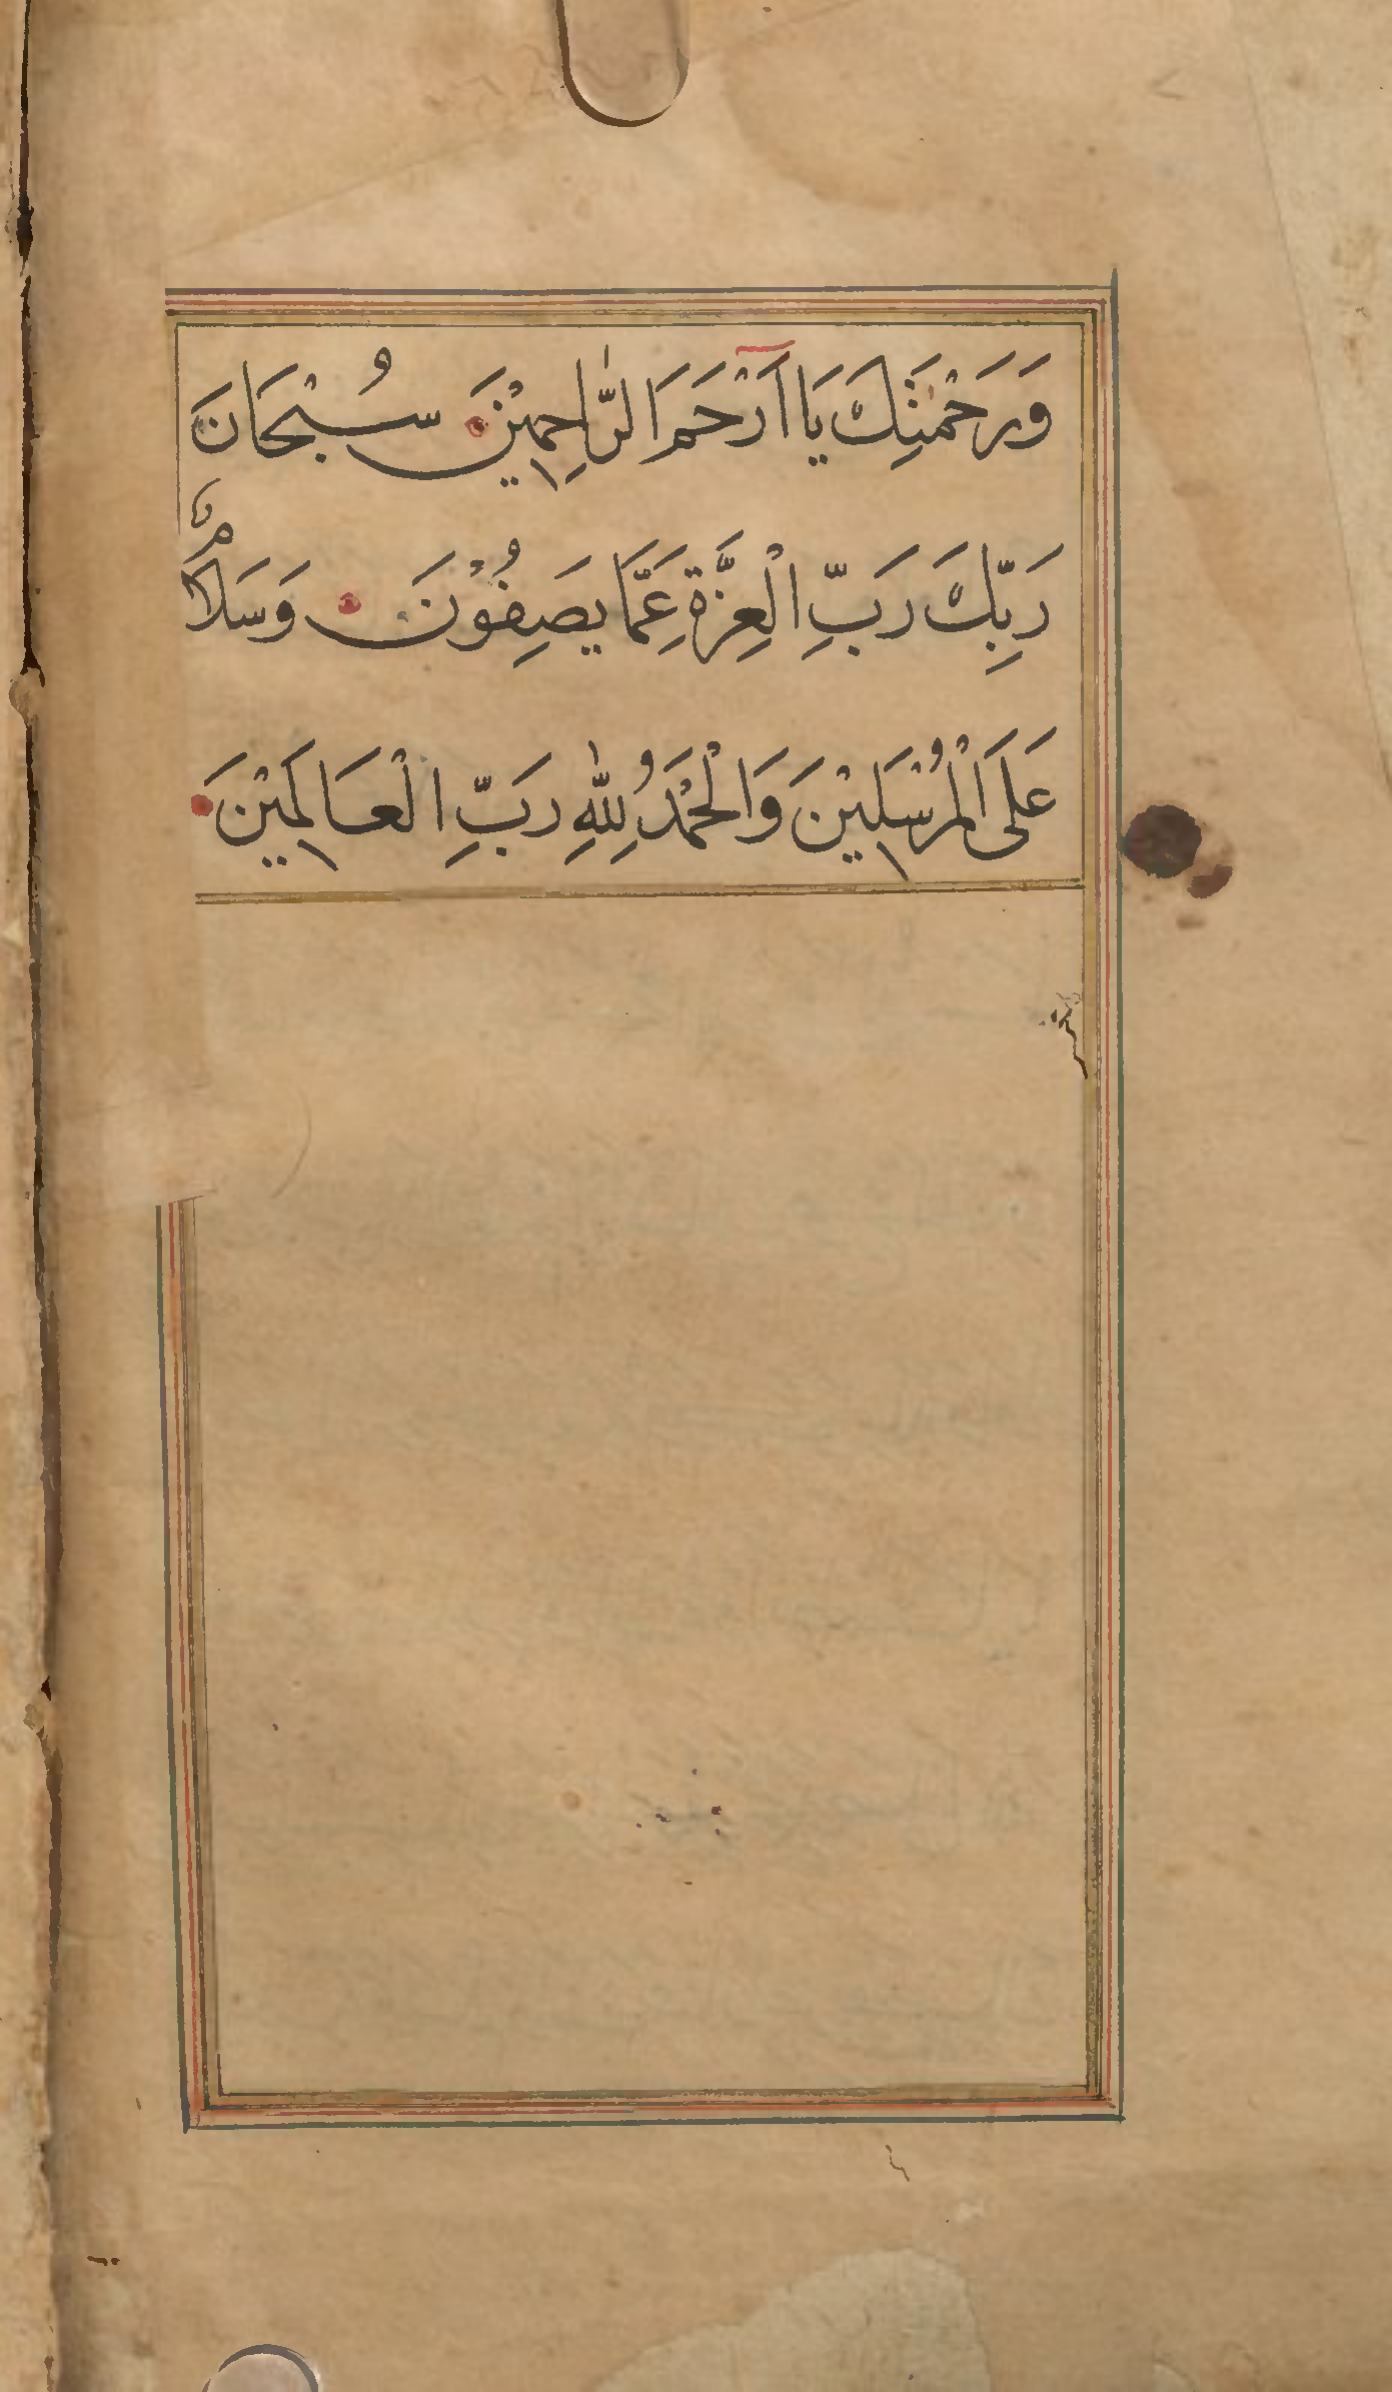 وَرَحْمَتِكَ يَا اَرْحَمَ الرَّاحِمِيْنَ سُبْحَانَ
رَبِّكَ رَبِّ الْعِزَّةِ عَمَّا يَصِفُوْنَ وَسَلَامٌ
عَلَى الْمُرْسَلِيْنَ وَالْحَمْدُ لِلّٰهِ رَبِّ الْعَالَمِيْنَ